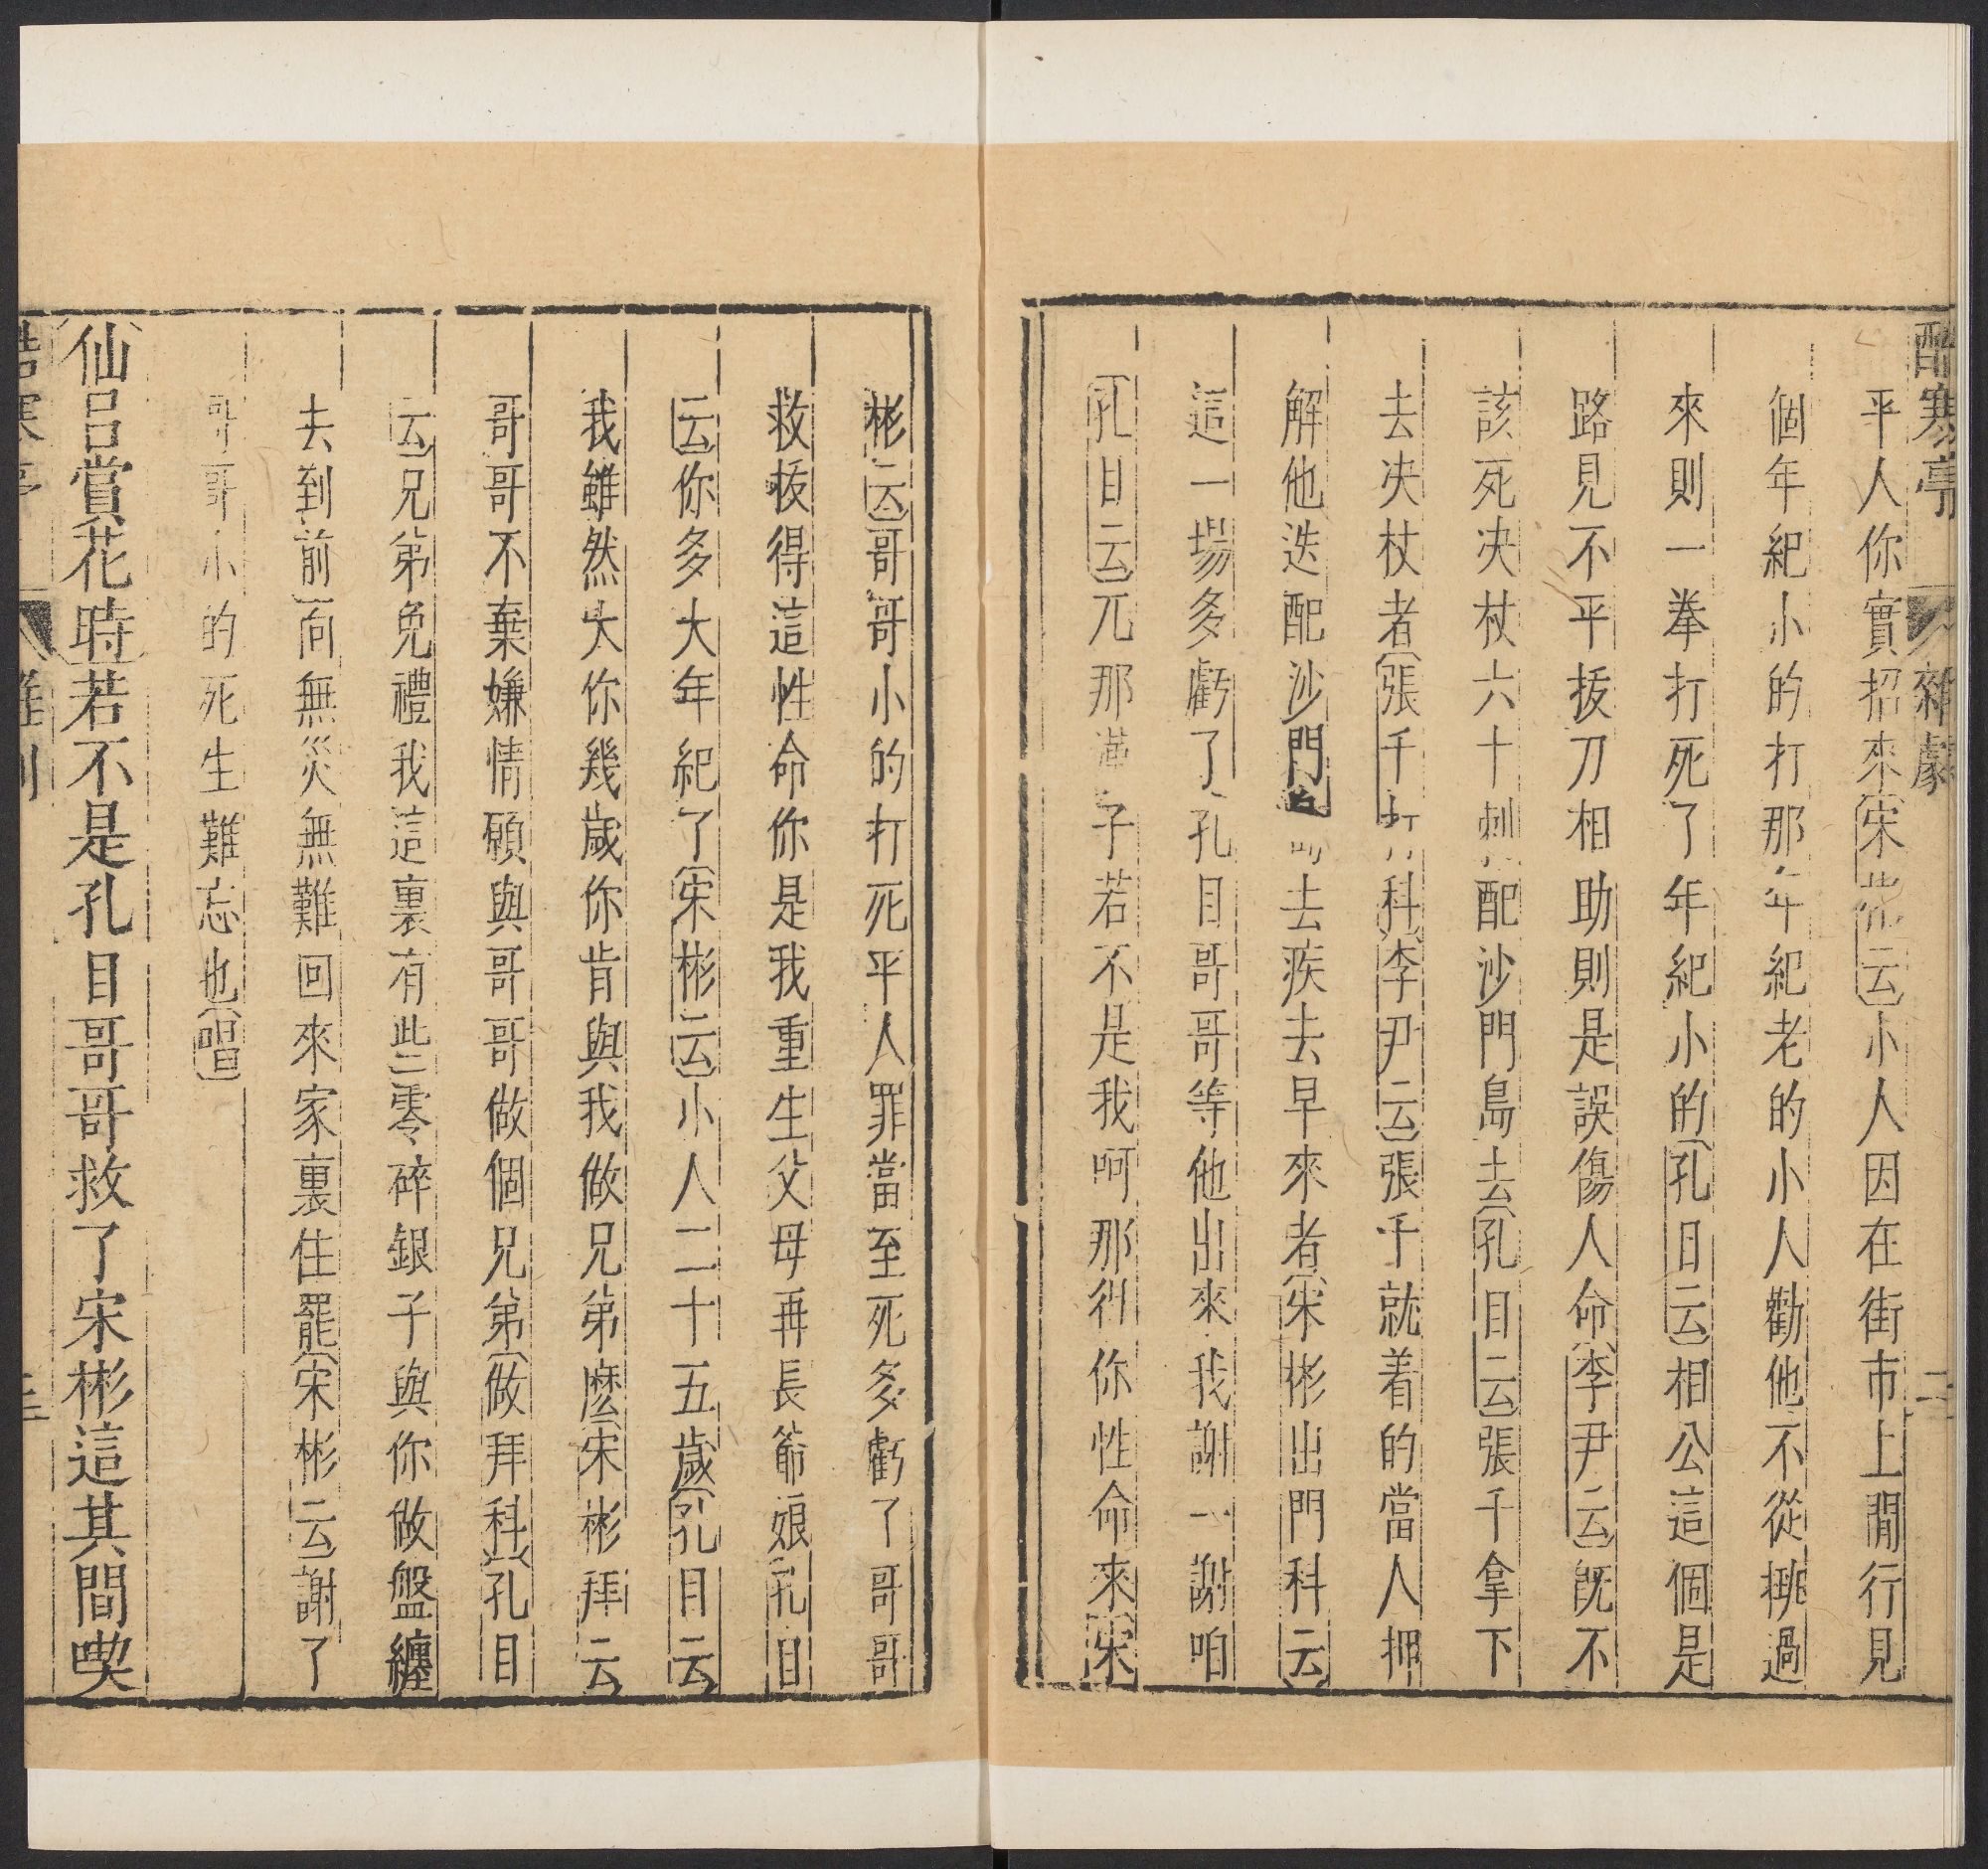 酷寒亭 雜劇 二
平人你實招來宋彬云小人因在街市上閒行見
個年紀小的打那年紀老的小人勸他不從揪過
來則一拳打死了年紀小的孔目云相公這個是
路見不平拔刀相助則是誤傷人命李尹云既不
該死决杖六十刺配沙門島去孔目云張千拿下
去决杖者張千打科李尹云張千就着的當人押
解他迭配沙門島去疾去早來者宋彬出門科云
這一場多虧了孔目哥哥等他出來我謝一謝咱
孔目云兀那漢子若不是我呵那得你性命來宋
彬云哥哥小的打死平人罪當至死多虧了哥哥
救拔得這性命你是我重生父母再長爺娘孔目
云你多大年紀了宋彬云小人二十五歲孔目云
我雖然大你幾歲你肯與我做兄弟麽宋彬拜云
哥哥不棄嫌情願與哥哥做個兄弟做拜科孔目
云兄弟免禮我這裏有些零碎銀子與你做盤纏
去到前向無災無難回來家裏住罷宋彬云謝了
哥哥小的死生難忘也唱
仙呂賞花時若不是孔目哥哥救了宋彬這其間喫
寒亭 三